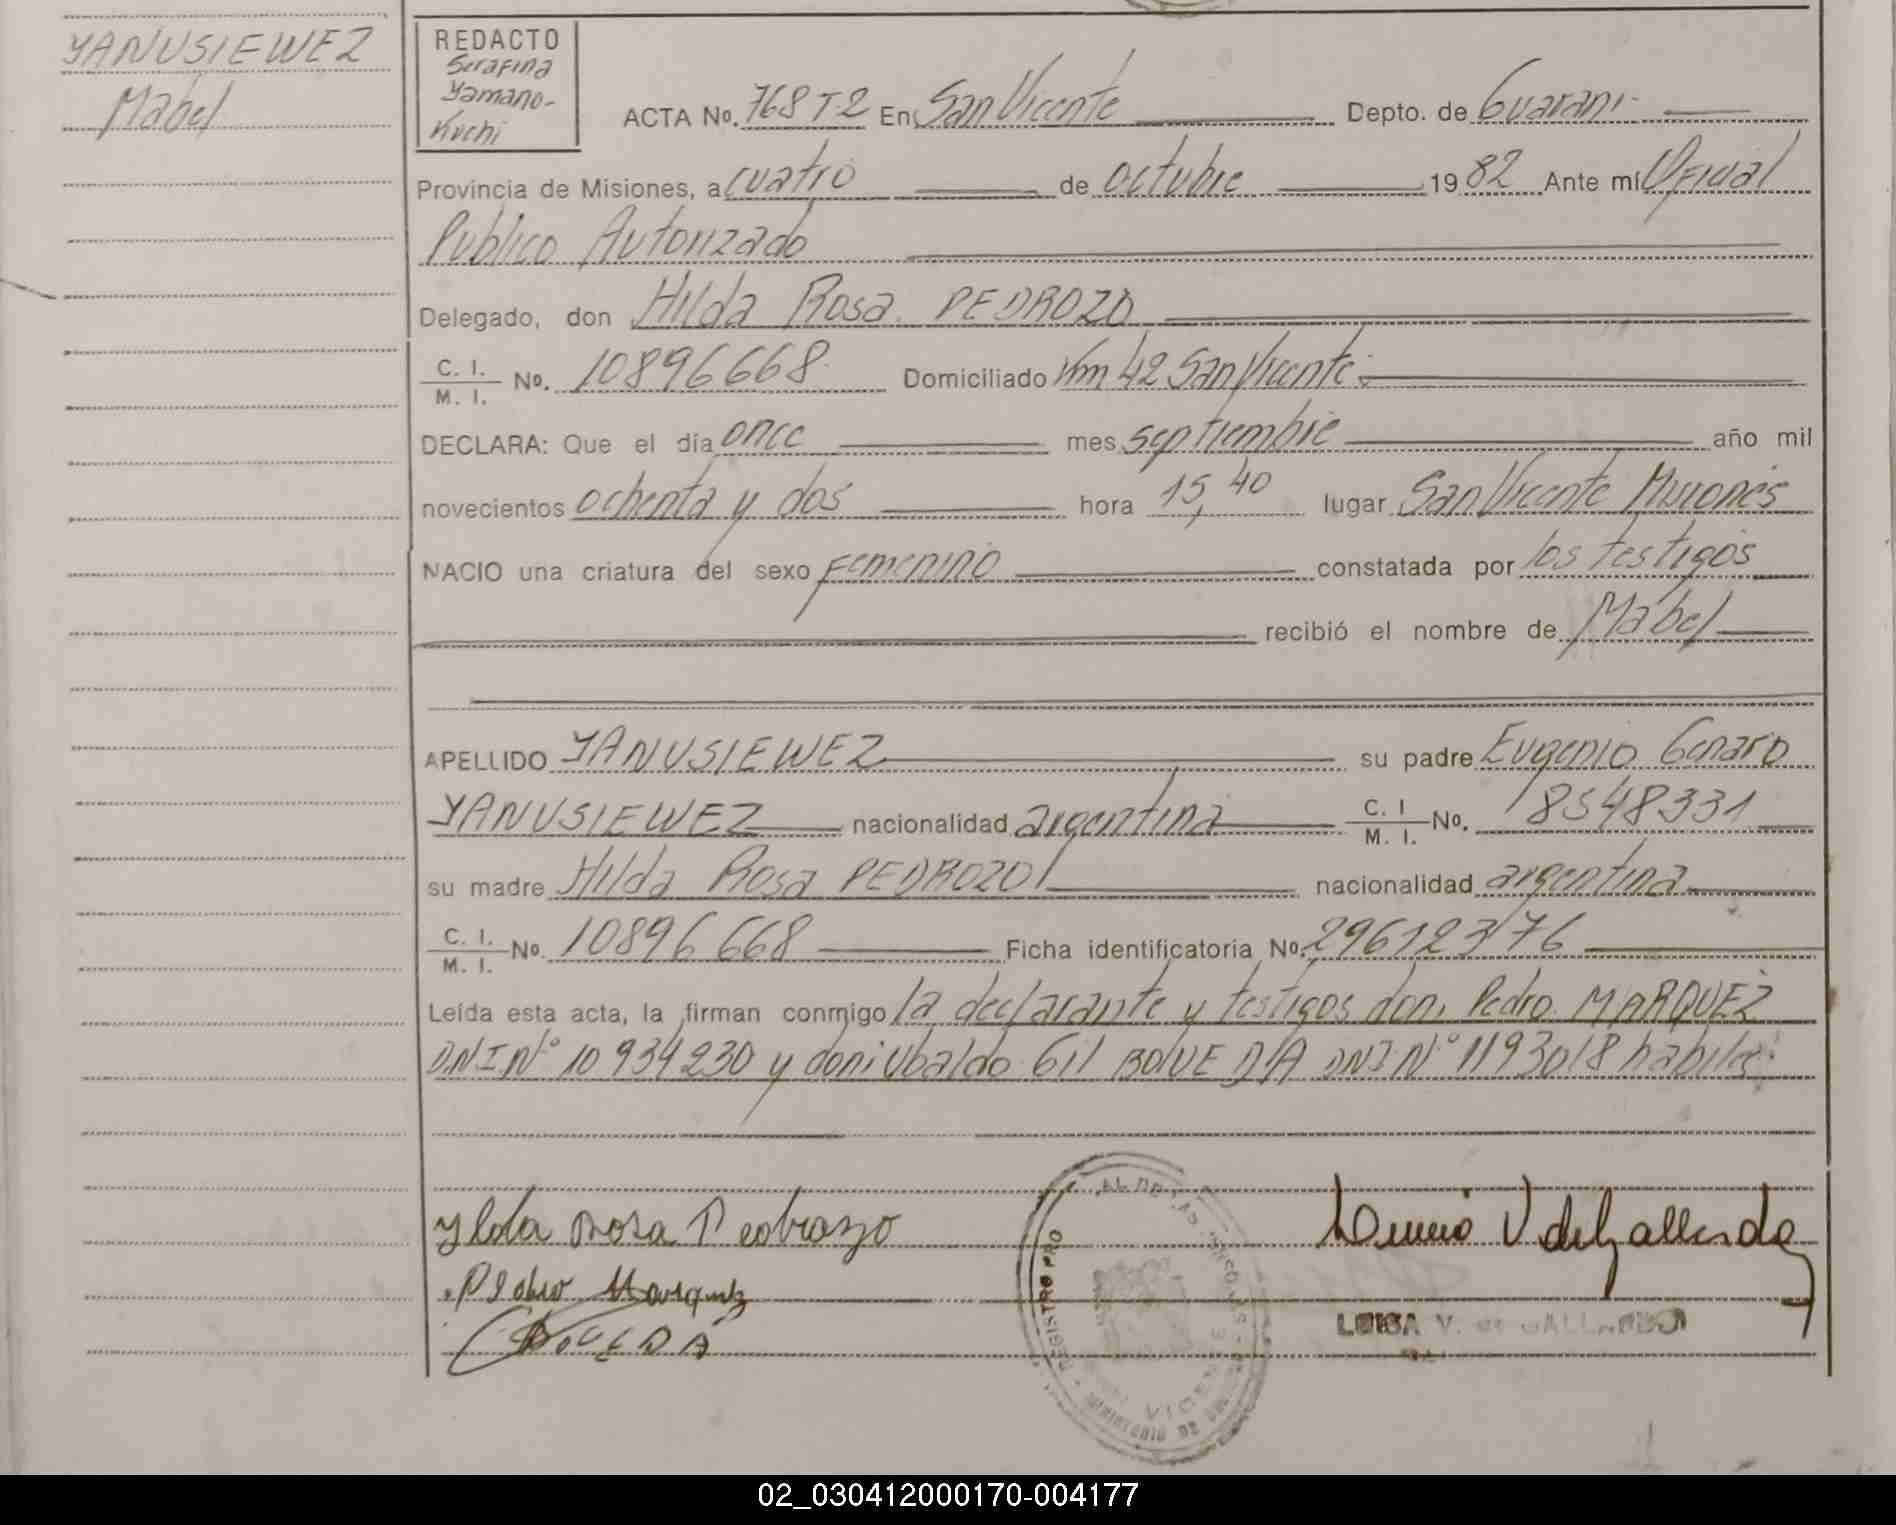 YANUSIEWEZ
Mabel
REDACTO
Serafina
Yamano-
Kuchi
ACTA No. 768 T-2 En San Vicente Depto. de Guarani
Provincia de Misiones, a cuatro de octubre 1982 Ante mí Oficial
Publico Autorizado
Delegado, don Hilda Rosa PEDROZO
C. I. / M. I. No. 10896668 Domiciliado Km 42 San Vicente
DECLARA: Que el día once mes septiembre año mil
novecientos ochenta y dos hora 15,40 lugar San Vicente Misiones
NACIO una criatura del sexo femenino constatada por los testigos
recibió el nombre de Mabel
APELLIDO YANUSIEWEZ su padre Eugenio Genaro
YANUSIEWEZ nacionalidad argentina C. I / M. I. No. 8548331
su madre Hilda Rosa PEDROZO nacionalidad argentina
C. I. / M. I. No. 10896668 Ficha identificatoria No. 296123/76
Leída esta acta, la firman conmigo la declarante y testigos don Pedro MARQUEZ
DNI N° 10934230 y don Ubaldo Gil DNI N° 11193018 habiles
Ylda Rosa Pedrozo
Pedro Marquez
LUISA V. de GALLARDO
REGISTRO PRO
02_030412000170-004177